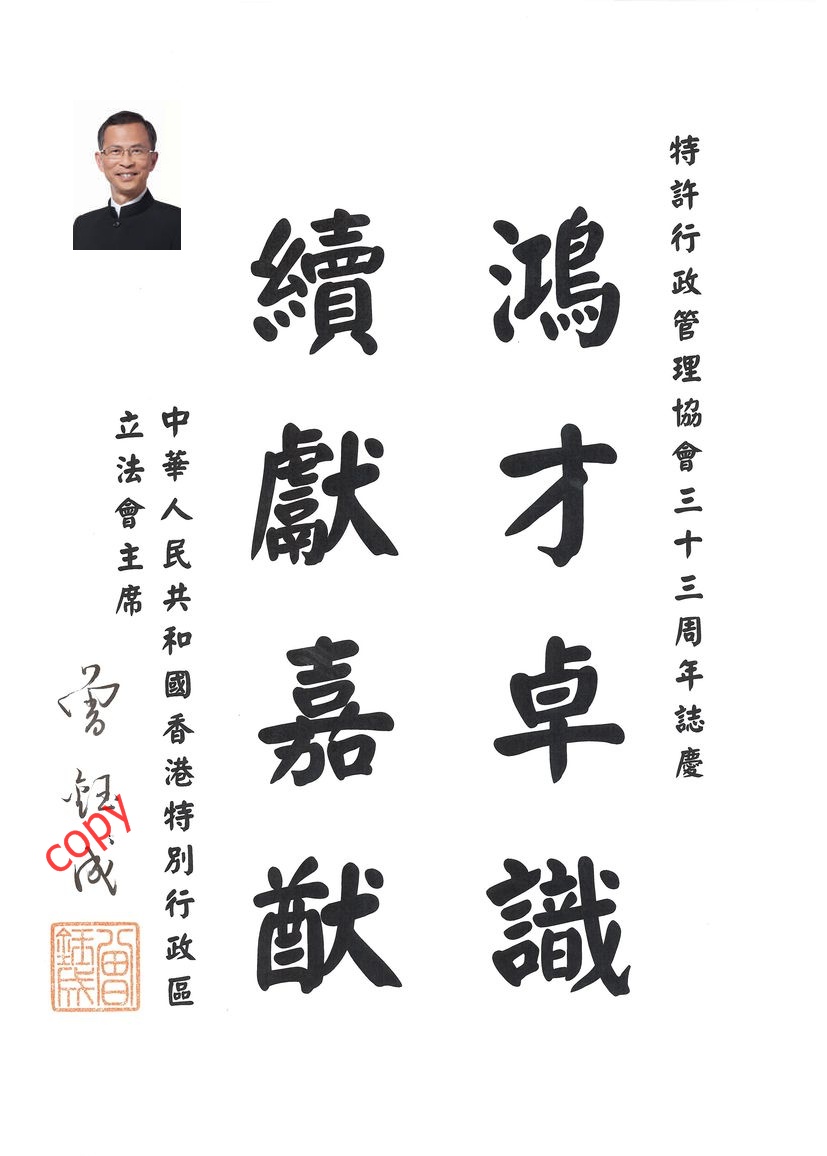 特許行政管理協會三十三周年誌慶
鴻才卓識
續獻嘉猷
中華人民共和國香港特別行政區
立法會主席
曾鈺成
copy
曾鈺成